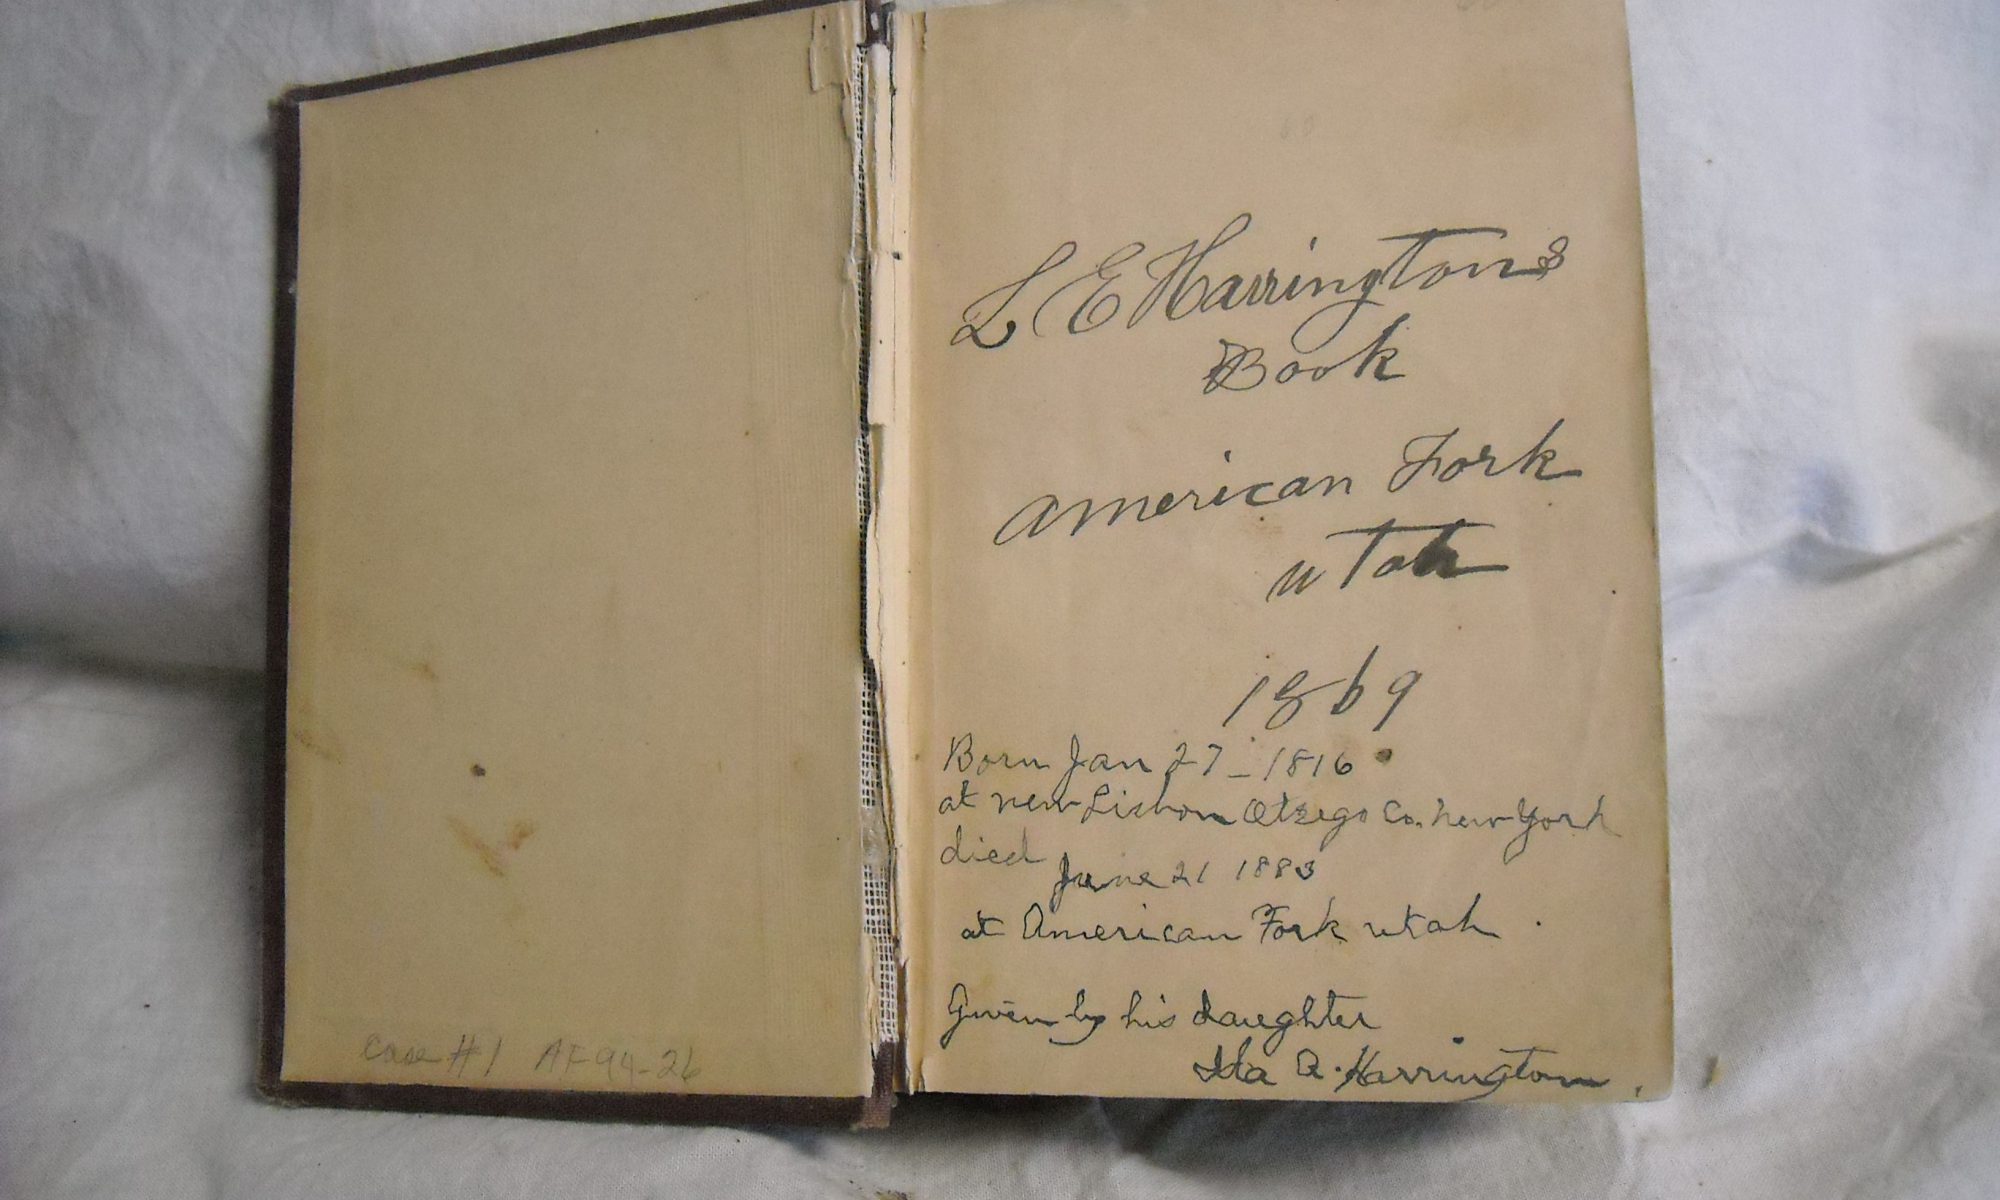 Case #1 AF94-26
L E Harringtons
Book
American Fork
utah
1869
Born Jan 27 - 1816
at new Lisbon Otsego Co. new York
died
June 21 1883
at American Fork utah.
Given by his daughter
Ida A. Harrington.